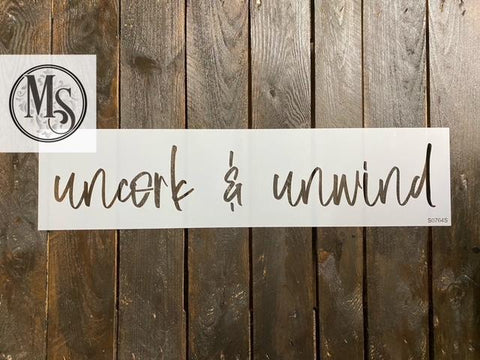 MS
uncork & unwind
S0764S